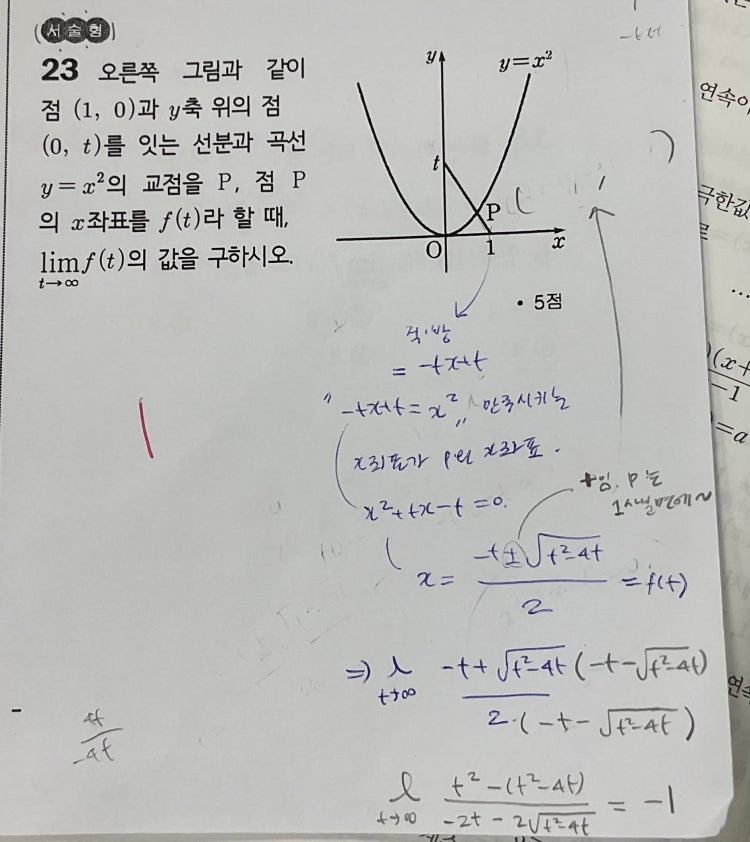 서술형
23 오른쪽 그림과 같이
점 (1, 0)과 y축 위의 점
(0, t)를 잇는 선분과 곡선
y=x²의 교점을 P, 점 P
의 x좌표를 f(t)라 할 때,
lim f(t)의 값을 구하시오.
t→∞
y
y=x²
t
P
O
1
x
• 5점
직·방
= -tx+t
"-tx+t = x²" 만족시키는
x좌표가 P의 x좌표.
x²+tx-t=0.
+임. P는
1사분면에~
x = (-t±√(t²-4t))/2 = f(t)
⇒ l t→∞ (-t+√(t²-4t) (-t-√(t²-4t))/(2·(-t-√(t²-4t))
l t→∞ (t²-(t²-4t))/(-2t-2√(t²-4t)) = -1
4t
-4t
연속이
극한값
로
...
)(x+
-1
)=a
연속